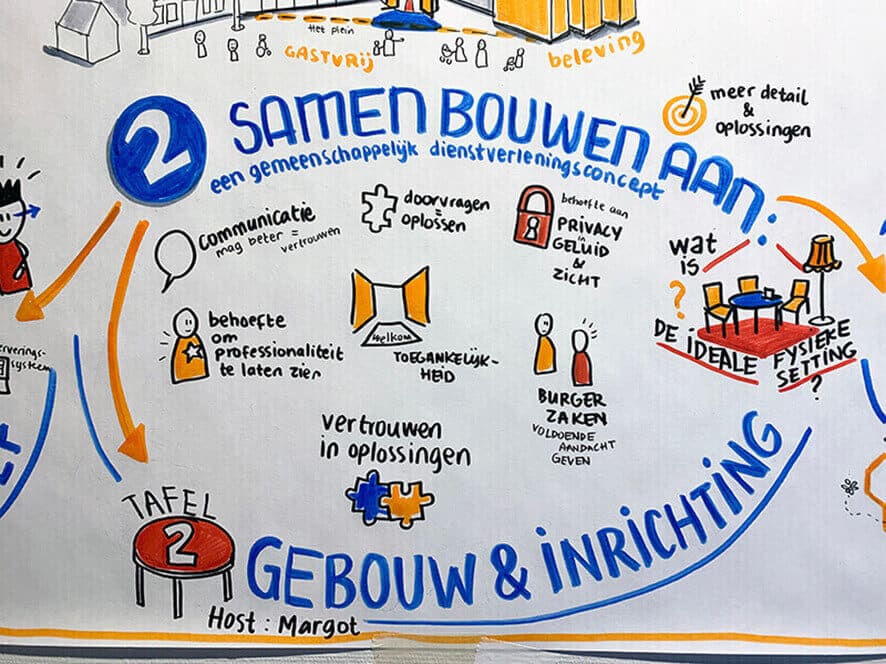 Het plein
GASTVRIJ
beleving
meer detail
&
oplossingen
2 SAMEN BOUWEN AAN:
een gemeenschappelijk dienstverleningsconcept
communicatie
mag beter =
vertrouwen
doorvragen
=
oplossen
behoefte aan
PRIVACY
in
GELUID
&
ZICHT
wat
is
?
DE IDEALE
FYSIEKE
SETTING
?
behoefte
om
professionaliteit
te laten zien
welkom
TOEGANKELIJK-
HEID
BURGER
ZAKEN
VOLDOENDE
AANDACHT
GEVEN
vertrouwen
in oplossingen
TAFEL
2
GEBOUW & INRICHTING
Host : Margot